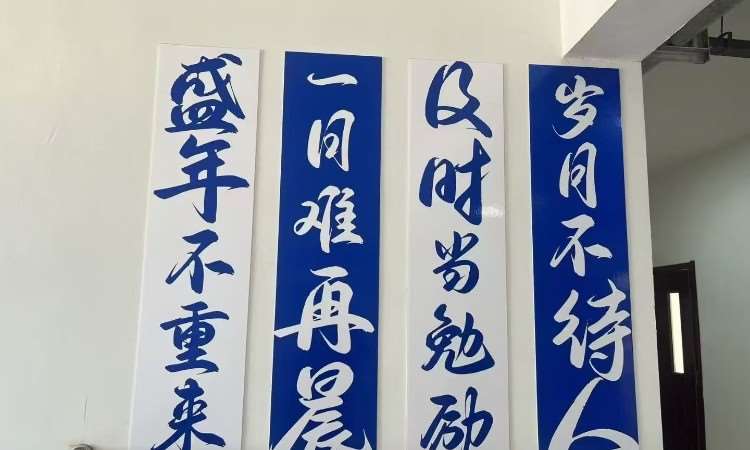 盛年不重来
一日难再晨
及时当勉励
岁月不待人